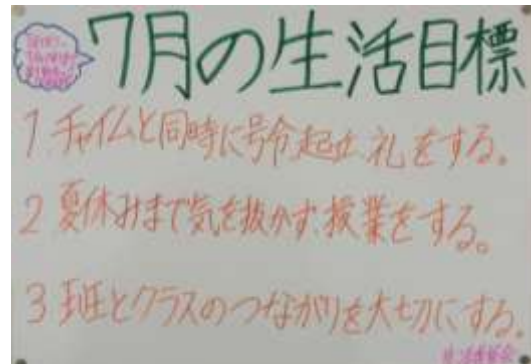 7月の生活目標
1.チャイムと同時に号令、起立、礼をする。
2 夏休みまで気を抜かず授業をする。
3 班とクラスのつながりを大切にする。